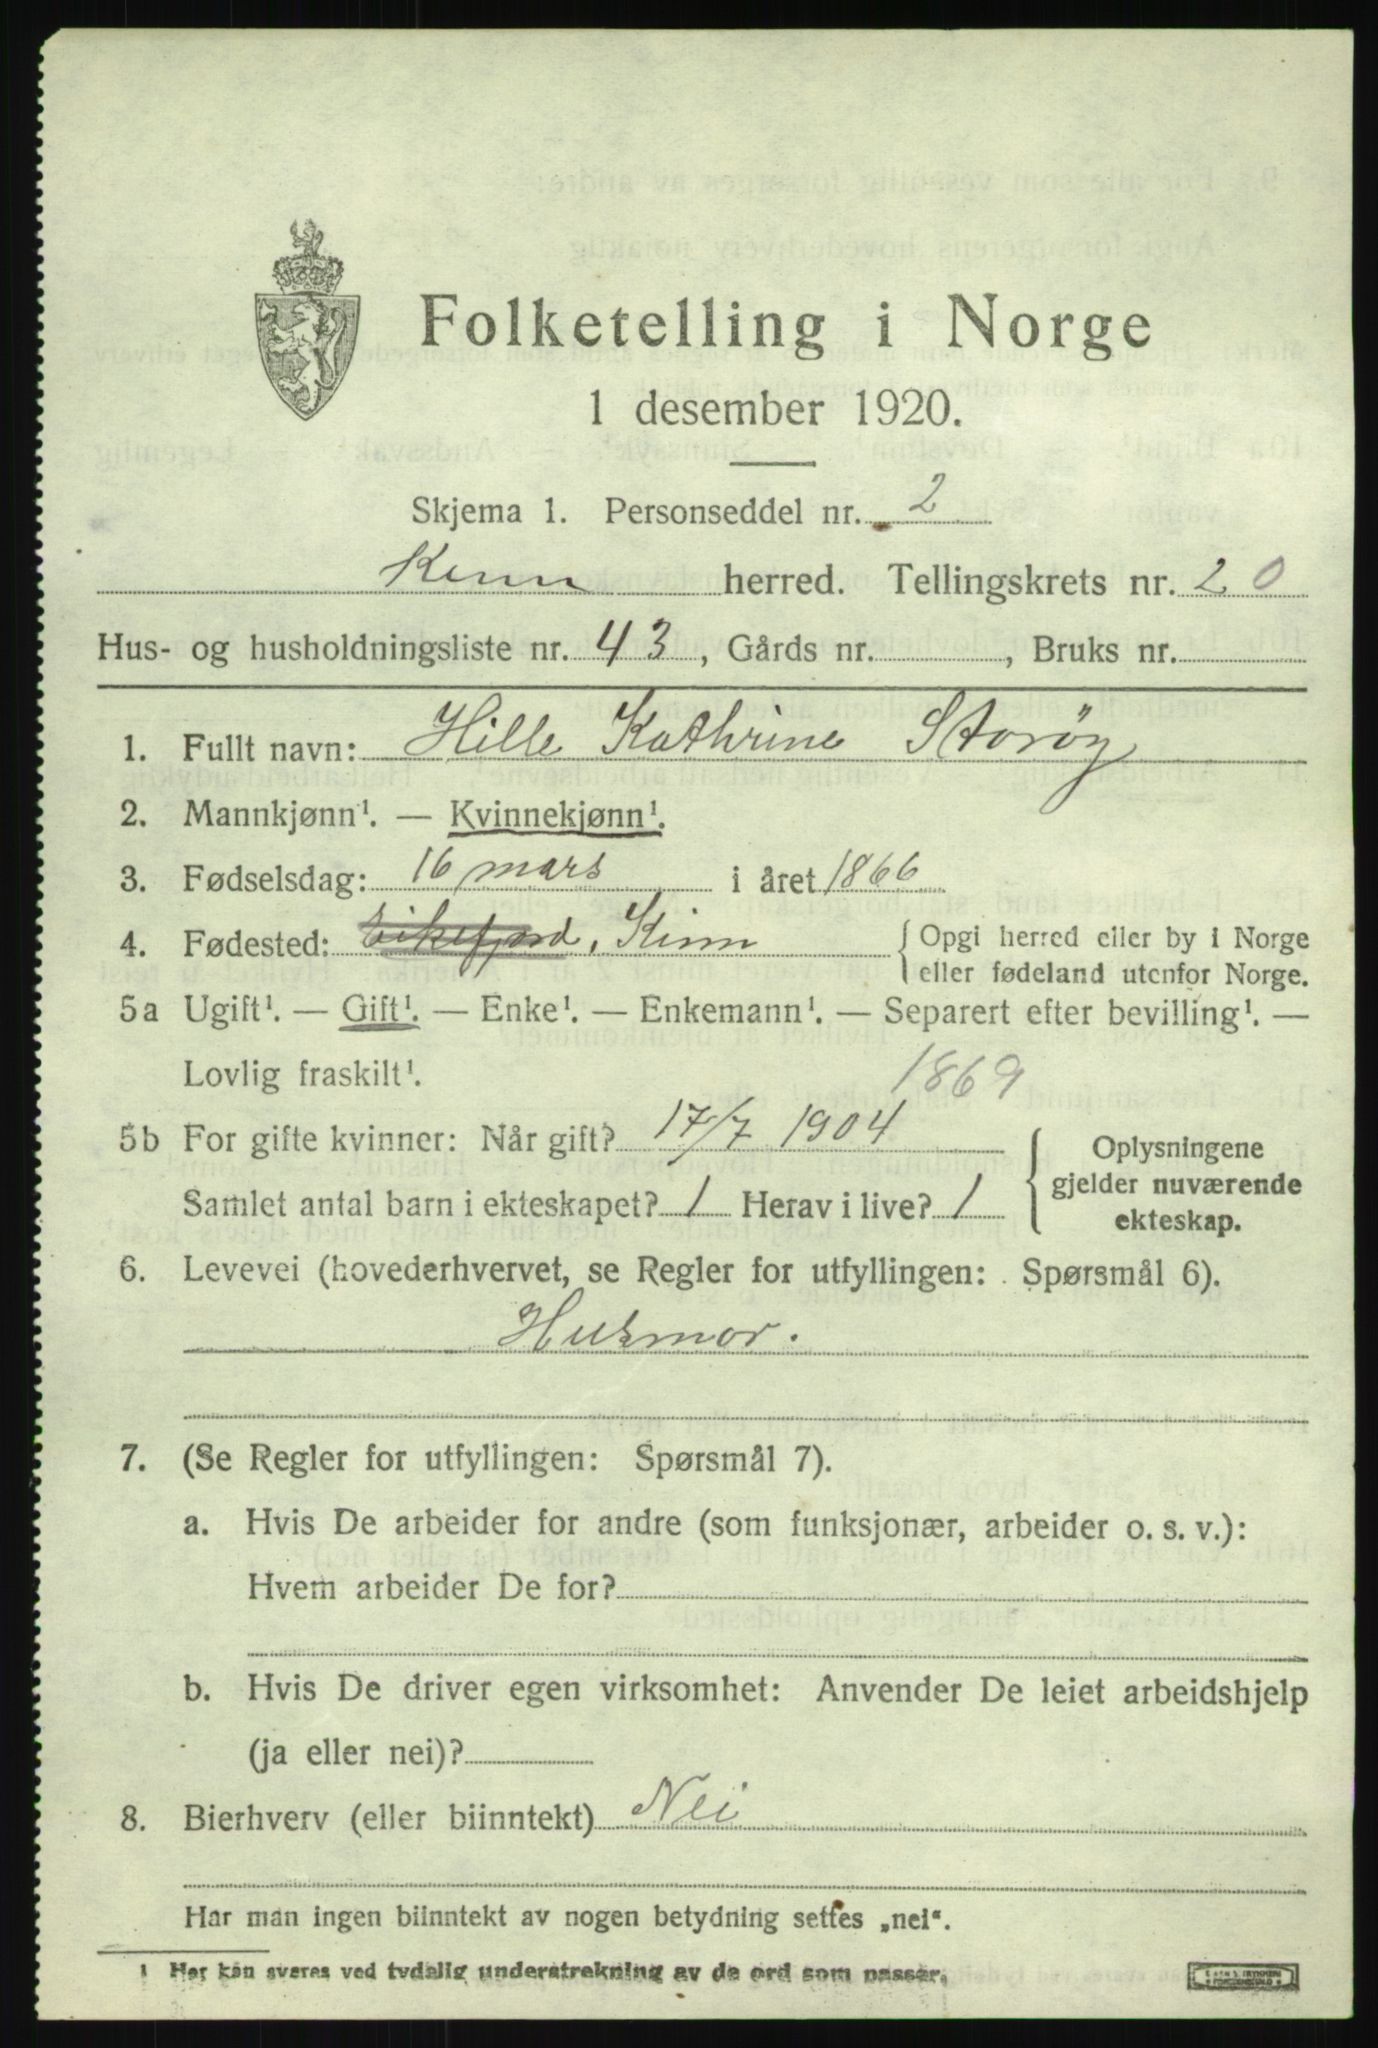 Folketelling i Norge
1 desember 1920.
Skjema 1. Personseddel nr. 2
Kinn herred. Tellingskrets nr. 20
Hus- og husholdningsliste nr. 43, Gårds nr. , Bruks nr.
1. Fullt navn: Hille Kathrine Storöy
2. Mannkjønn¹. — Kvinnekjønn¹.
3. Fødselsdag: 16 mars i året 1866
4. Fødested: Eikefjord, Kinn { Opgi herred eller by i Norge
eller fødeland utenfor Norge.
5a Ugift¹. — Gift¹. — Enke¹. — Enkemann¹. — Separert efter bevilling¹. —
Lovlig fraskilt¹. 1869
5b For gifte kvinner: Når gift? 17/7 1904
Samlet antal barn i ekteskapet? 1 Herav i live? 1
Oplysningene
gjelder nuværende
ekteskap.
6. Levevei (hovederhvervet, se Regler for utfyllingen: Spørsmål 6).
Husmor.
7. (Se Regler for utfyllingen: Spørsmål 7).
a. Hvis De arbeider for andre (som funksjonær, arbeider o. s. v.):
Hvem arbeider De for?
b. Hvis De driver egen virksomhet: Anvender De leiet arbeidshjelp
(ja eller nei)?
8. Bierhverv (eller biinntekt) Nei
Har man ingen biinntekt av nogen betydning settes „nei“.
1 Her kan svares ved tydelig understrekning av de ord som passer.